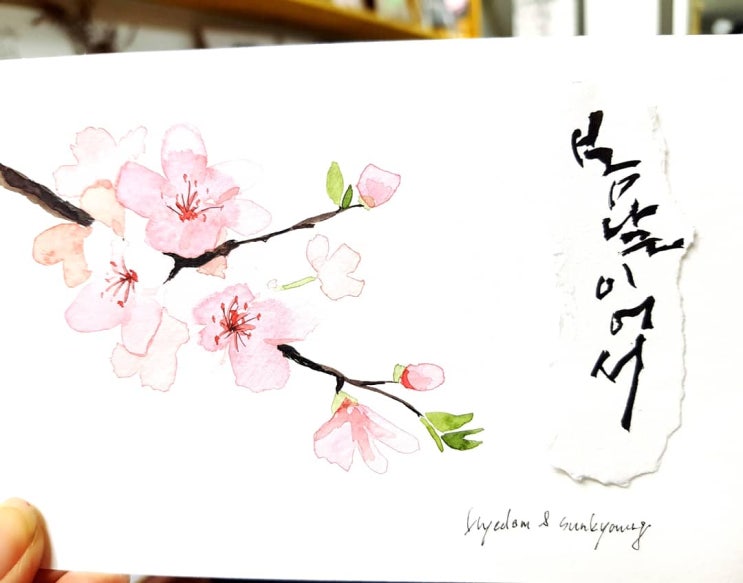 봄날이어서
Hyedam & sunkyoung